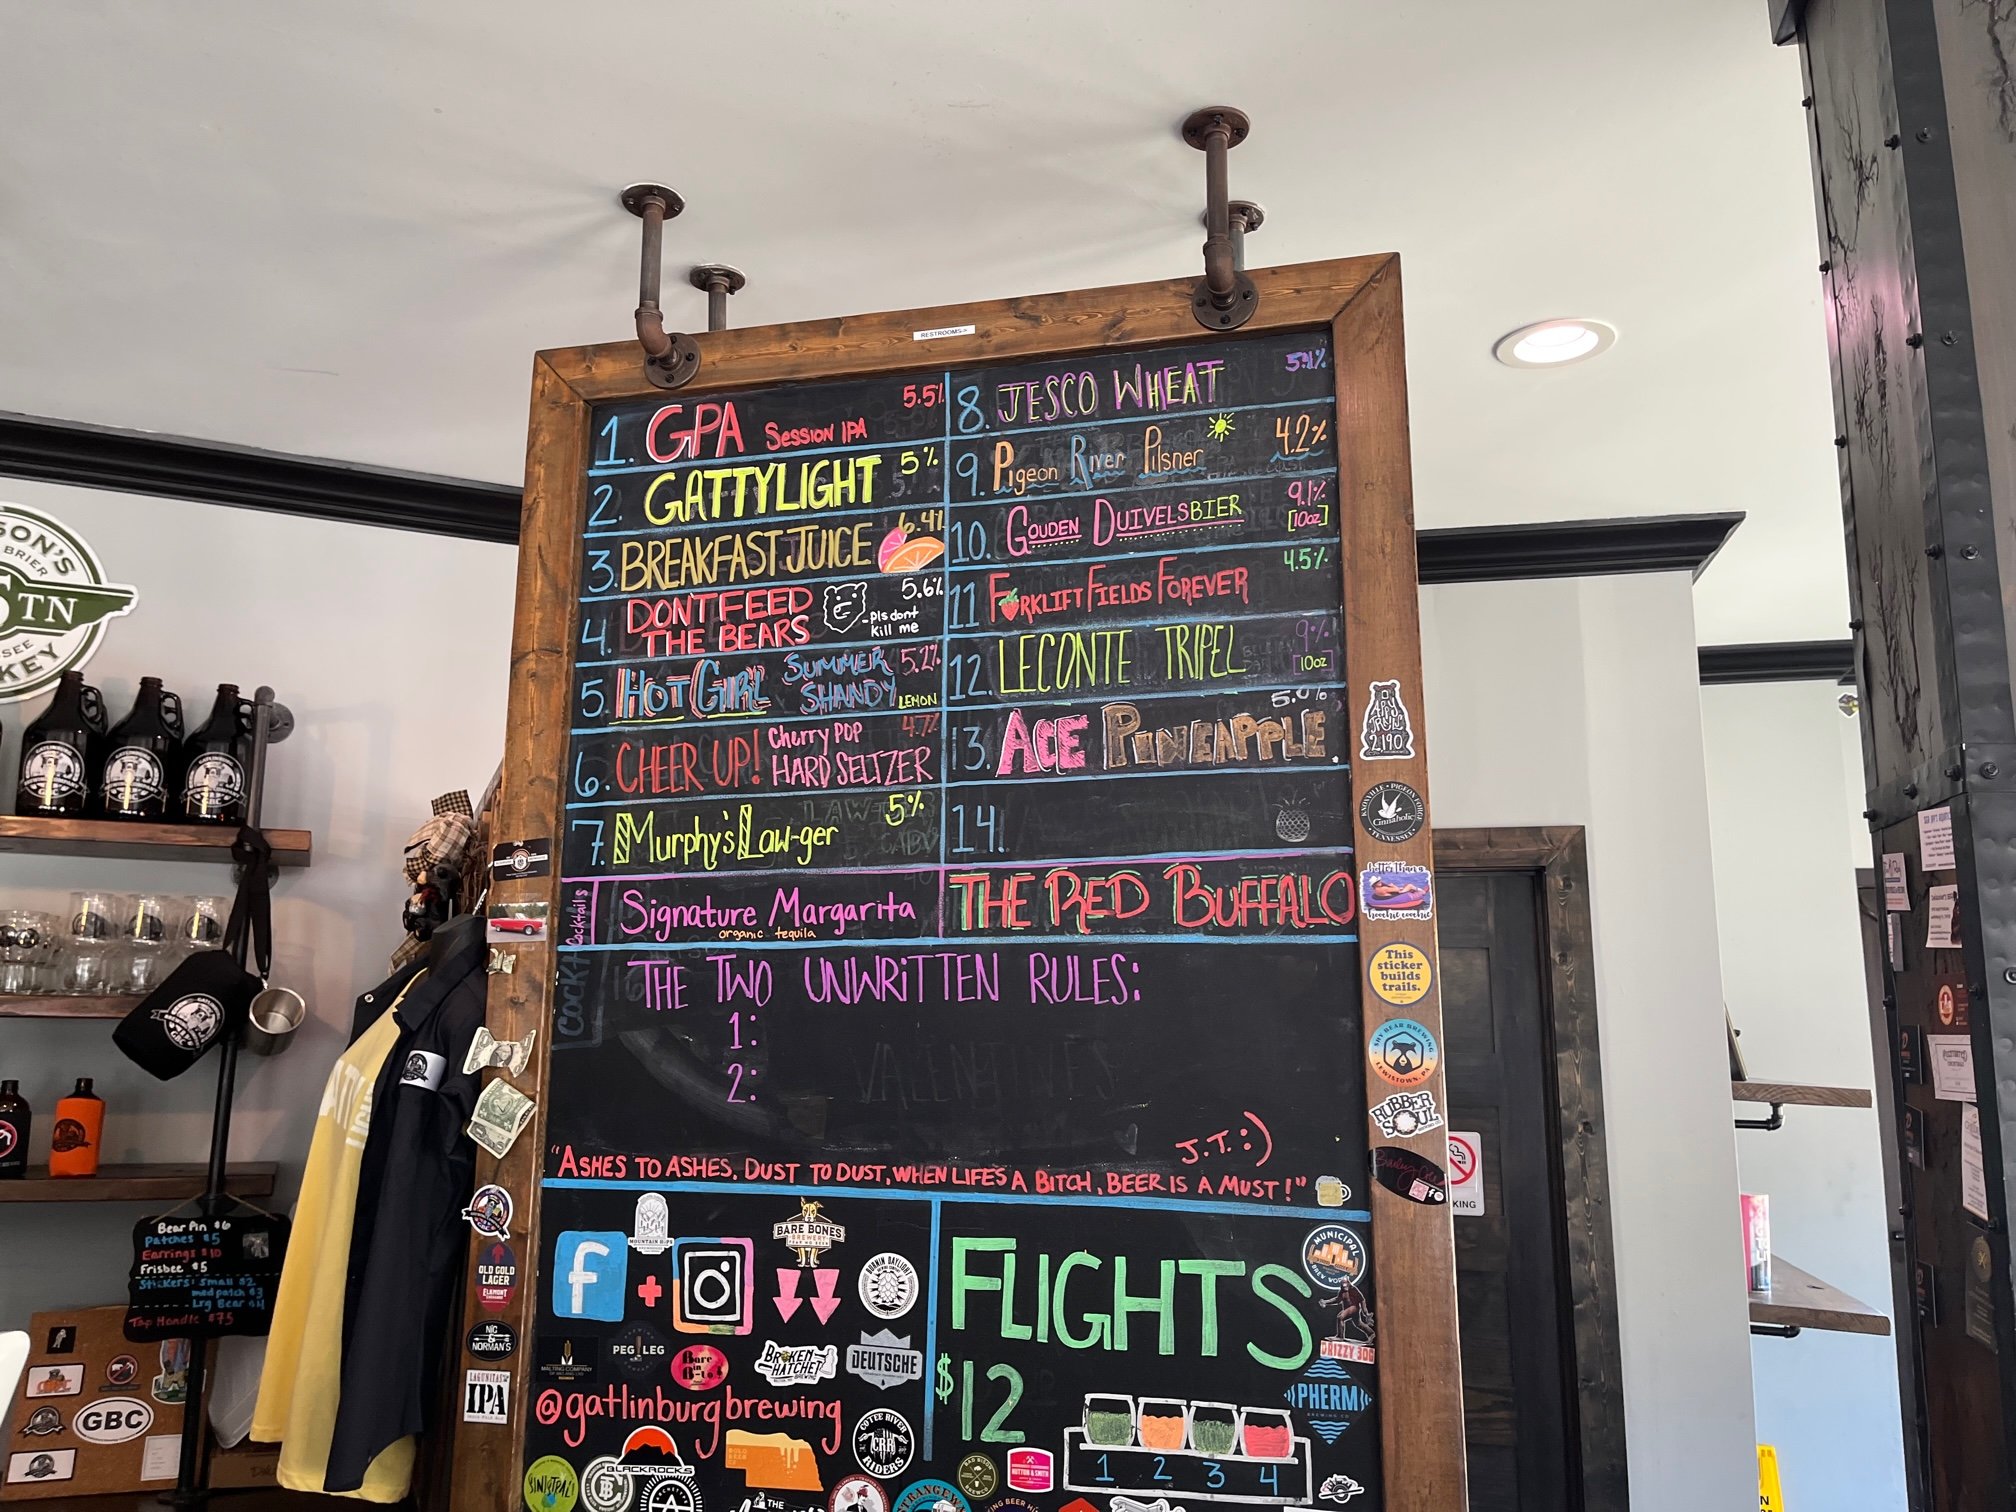 RESTROOMS->
1. GPA SESSION IPA 5.5%
2. GATTYLIGHT 5%
3. BREAKFAST JUICE 6.4%
4. DONT FEED THE BEARS 5.6%
-pls dont
kill me
5. HOT GIRL SUMMER SHANDY 5.2%
LEMON
6. CHEER UP! Cherry POP HARD SELTZER 4.7%
7. Murphy's Law-ger 5%
8. JESCO WHEAT 5.1%
9. Pigeon River Pilsner 4.2%
10. GOUDEN DUIVELSBIER 9.1%
[10oz]
11 FORKLIFT FIELDS FOREVER 4.5%
12. LECONTE TRIPEL 9%
[10oz]
13. ACE PINEAPPLE 5.0%
14.
Cocktails
Signature Margarita
organic tequila
THE RED BUFFALO
THE TWO UNWRITTEN RULES:
1:
2:
J.T. :)
"ASHES TO ASHES, DUST TO DUST, WHEN LIFE'S A BITCH, BEER IS A MUST!"
f + 
@gatlinburgbrewing
FLIGHTS
$12
1 2 3 4
MOUNTAIN HOPS
BARE BONES
BREWERY
BURNIN DAYLIGHT
MALTING COMPANY
PEG LEG
BROKEN
HATCHET
BREWING
DEUTSCHE
COTEE RIVER
CRB
RIDERS
BLACKROCKS
SINISTRAL
MUNICIPAL
BREW WORKS
GRIZZY 306
PHERM
BREWING CO
2190
KNOXVILLE • PIGEON FORGE
Cinnaholic
TENNESSEE
hotter than a
hoochie coochie
This
sticker
builds
trails.
SHY BEAR BREWING
LEWISTOWN, PA
RUBBER
SOUL
KING
OLD GOLD
LAGER
ELKMONT
EXCHANGE
NIC
&
NORMAN'S
LAGUNITAS
IPA
INDIA PALE ALE
SON'S
BRIER
TN
SEE
KEY
Bear Pin $6
Patches $5
Earrings $10
Frisbee $5
Stickers: Small $2
med patch $3
Lrg Bear $4
Tap Handle $75
GBC